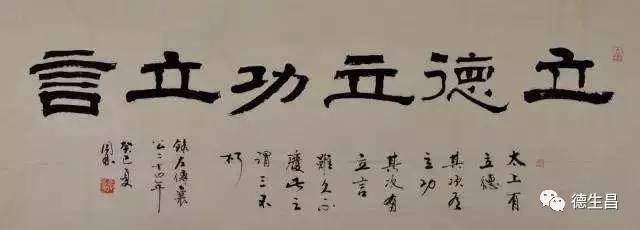 立德立功立言
太上有
立德
其次有
立功
其次有
立言
雖久不
廢此之
謂三不
朽
錄左傳襄
公二十四年
癸巳夏
德生昌